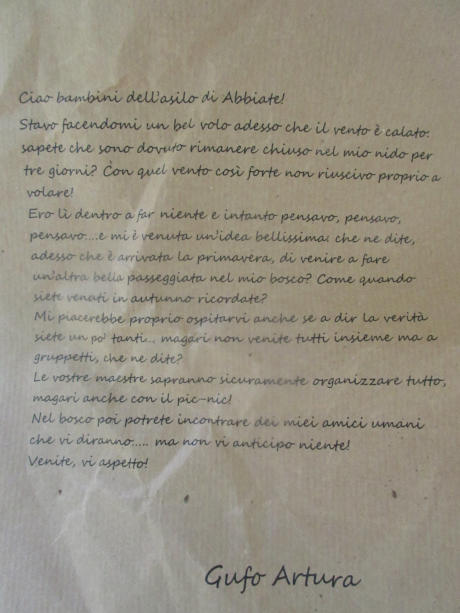 Ciao bambini dell'asilo di Abbiate!
Stavo facendomi un bel volo adesso che il vento è calato:
sapete che sono dovuto rimanere chiuso nel mio nido per
tre giorni? Con quel vento così forte non riuscivo proprio a
volare!
Ero lì dentro a far niente e intanto pensavo, pensavo,
pensavo....e mi è venuta un'idea bellissima: che ne dite,
adesso che è arrivata la primavera, di venire a fare
un'altra bella passeggiata nel mio bosco? Come quando
siete venuti in autunno ricordate?
Mi piacerebbe proprio ospitarvi anche se a dir la verità
siete un po' tanti... magari non venite tutti insieme ma a
gruppetti, che ne dite?
Le vostre maestre sapranno sicuramente organizzare tutto,
magari anche con il pic-nic!
Nel bosco poi potrete incontrare dei miei amici umani
che vi diranno..... ma non vi anticipo niente!
Venite, vi aspetto!
Gufo Artura